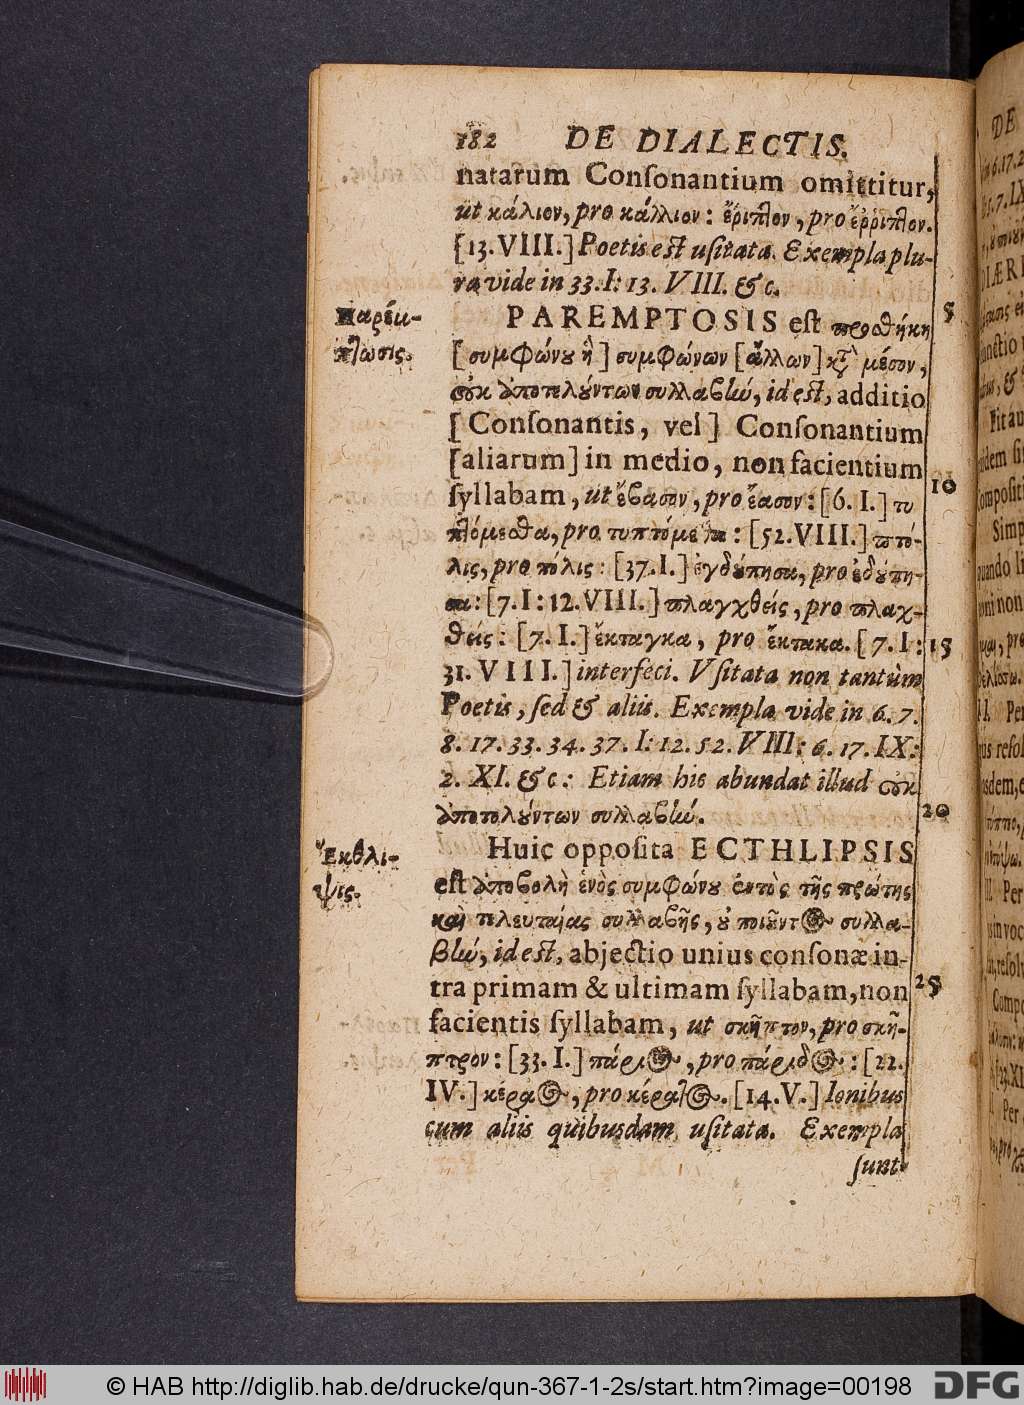 182 DE DIALECTIS.
natarum Conſonantium omittitur,
ut κάλιον, pro κάλλιον: ἔριπτον, pro ἔῤῥιπτον.
[13. VIII.] Poetis est uſitata. Exempla plu-
ra vide in 33. I: 13. VIII. & c.
Παρέμ-
πτωσις.
PAREMPTOSIS est προσθήκη
[συμφώνου ἢ] συμφώνων [ἄλλων] κατὰ μέσον,
οὐκ ἀποτελούντων συλλαβὴν, id est, additio
[Conſonantis, vel] Conſonantium
[aliarum] in medio, non facientium
ſyllabam, ut ἔβασον, pro ἔασον: [6. I.] τυ
πτόμεσθα, pro τυπτόμεθα: [52. VIII.] πτό-
λις, pro πόλις: [37. I.] ἐγδούπησα, pro ἐδούπη-
σα: [7. I: 12. VIII.] πλαγχθείς, pro πλαχ-
θείς: [7. I.] ἔκταγκα, pro ἔκτακα. [7. I:
31. VIII.] interfeci. Vſitata non tantùm
Poetis, ſed & aliis. Exempla vide in 6. 7.
8. 17. 33. 34. 37. I: 12. 52. VIII: 6. 17. IX:
2. XI. & c: Etiam hic abundat illud οὐκ
ἀποτελούντων συλλαβὴν.
Ἔκθλι-
ψις.
Huic oppoſita ECTHLIPSIS
est ἀποβολὴ ἑνὸς συμφώνου ἐντὸς τῆς πρώτης
καὶ τελευταίας συλλαβῆς, οὐ ποιοῦντος συλλα-
βὴν, id est, abjectio unius conſonæ in-
tra primam & ultimam ſyllabam, non
facientis ſyllabam, ut σκῆπτον, pro σκῆ-
πτρον: [33. I.] πάριος, pro πάριδος: [22.
IV.] κέραος, pro κέρατος. [14. V.] Ionibus
cum aliis quibusdam uſitata. Exempla
ſunt
5
10
15
20
25
© HAB http://diglib.hab.de/drucke/qun-367-1-2s/start.htm?image=00198
DFG